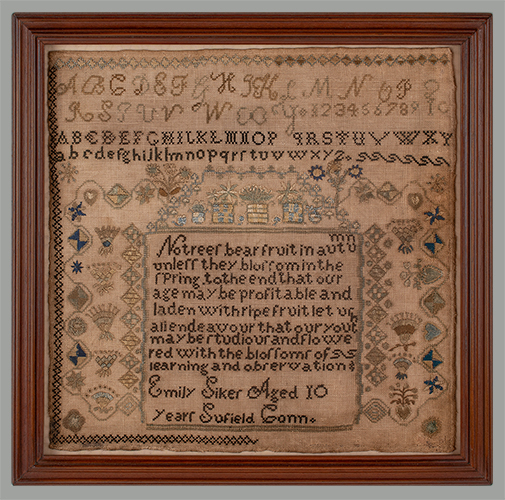 A B C D E F G H I K L M N O P Q
R S T U V W X Y Z 1 2 3 4 5 6 7 8 9 1 0
A B C D E F G H I L K L M N O P Q R S T U V W X Y
a b c d e f g h i j k l m n o p q r s t u v w x y z
No treeſ bear fruit in autu
mn
unleſſ they bloſſom in the
ſpring to the end that our
age may be profitable and
laden with ripe fruit let uſ
all endeavour that our yout
h
may be ſtudiouſ and flowe
red with the bloſſomſ of
learning and obſervation
Emily Siker Aged 10
yearſ Sufield Conn.